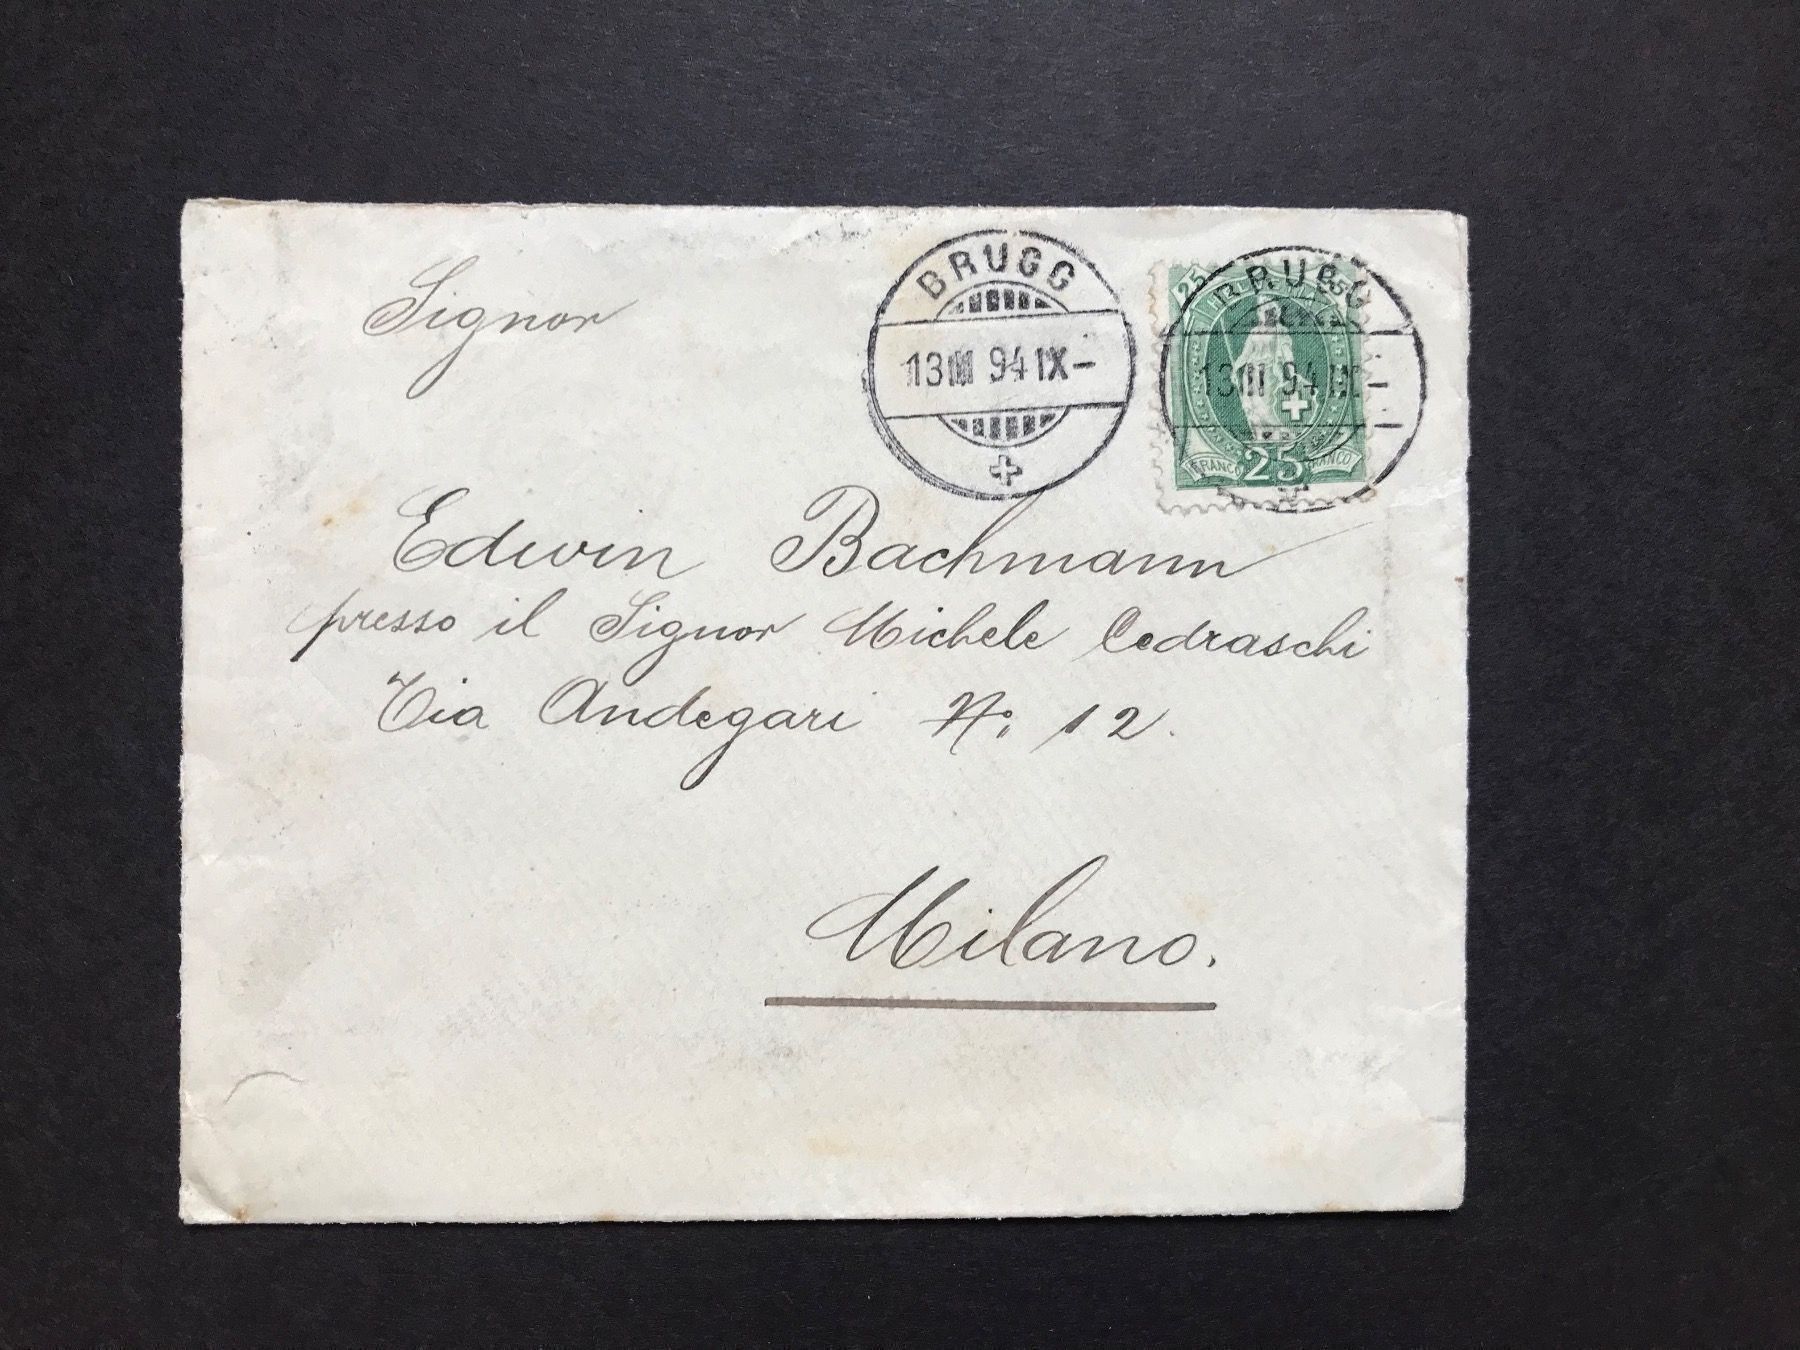 BRUGG
13 III 94 IX –
BRUGG
13 III 94 IX
25
FRANCO 25 FRANCO
Signor
Edwin Bachmann
presso il Signor Michele Cedraschi
Via Andegari No 12.
Milano.